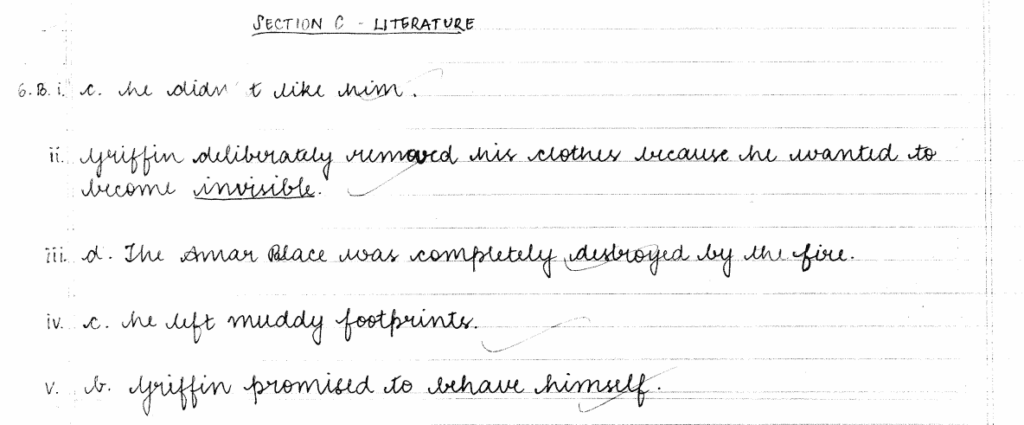 SECTION C - LITERATURE
6.B. i. c. he didn't like him.
ii. Griffin deliberately removed his clothes because he wanted to
become invisible.
iii. d. The Amar Place was completely destroyed by the fire.
iv. c. he left muddy footprints.
v. b. Griffin promised to behave himself.